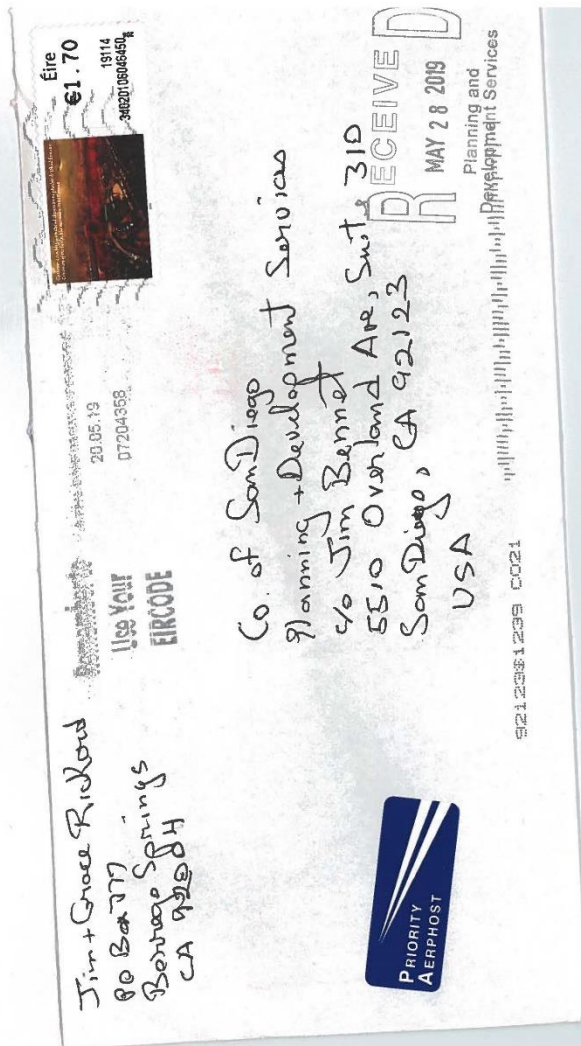 Jim + Grace Rickard
PO Box 777
Borrego Springs
CA 92004
Use Your
EIRCODE
20.05.19
07204358
Éire
€1.70
19114
Co. of San Diego
Planning + Development Services
c/o Jim Bennet
5510 Overland Ave, Suite 310
San Diego, CA 92123
USA
RECEIVED
MAY 28 2019
Planning and
Development Services
PRIORITY
AERPHOST